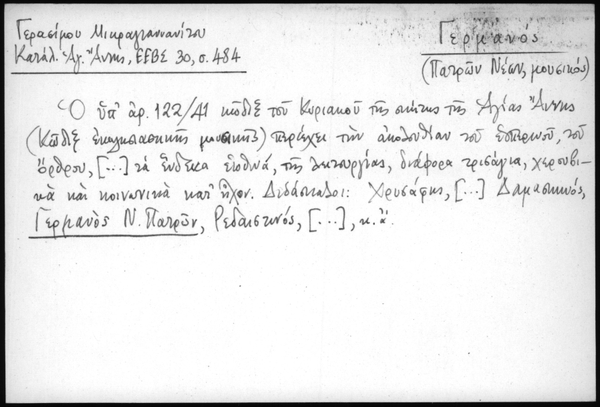 Γερασίμου Μικραγιαννανίτου
Κατάλ. Ἁγ. Ἄννης, ΕΕΒΣ 30, σ. 484
Γερμανός
(Πατρῶν Νέων, μουσικός)
Ὁ ὑπ' ἀρ. 122/41 κῶδιξ τοῦ Κυριακοῦ τῆς σκήτης τῆς Ἁγίας Ἄννης
(Κῶδιξ ἐκκλησιαστικῆς μουσικῆς) περιέχει τὴν ἀκολουθίαν τοῦ ἑσπερινοῦ, τοῦ
ὄρθρου, [...] τὰ ἕνδεκα ἑωθινά, τῆς λειτουργίας, διάφορα τρισάγια, χερουβι-
κὰ καὶ κοινωνικὰ κατ' ἦχον. Διδάσκαλοι: Χρυσάφης, [...] Δαμασκηνός,
Γερμανὸς Ν. Πατρῶν, Ῥεδαιστινός, [...], κ.ἄ.